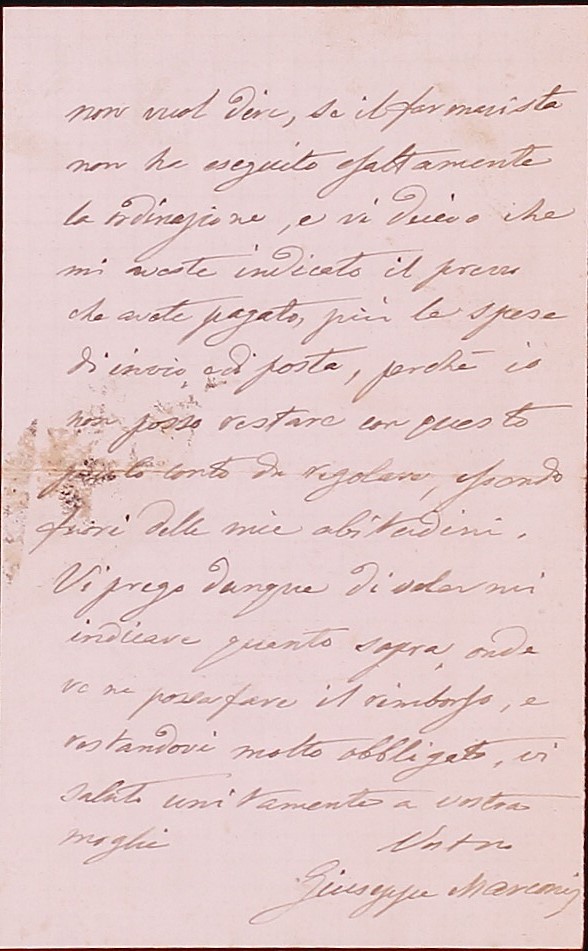 non vuol dire, se il farmacista
non ha eseguito esattamente
la ordinazione, e vi dicevo che
mi aveste indicato il prezzo
che avete pagato, più le spese
di invio, e di posta, perchè io
non posso restare con questo
piccolo conto da regolare, essendo
fuori delle mie abitudini.
Vi prego dunque di volermi
indicare quanto sopra, onde
ve ne possa fare il rimborso, e
restandovi molto obbligato, vi
saluto unitamente a vostra
moglie
Vostro
Giuseppe Marconi